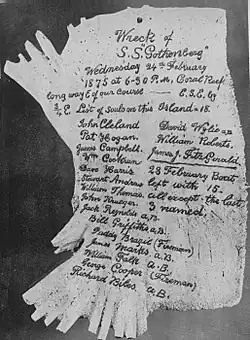 Wreck of
S.S. "Gothenberg"
Wednesday 24th February
1875 at 6-30 P.M, Coral Reef
long way E of our course — E.S.E. by
½ E. List of souls on this Island = 18.
John Cleland David Wylie
Pat Hogan. William Roberts.
James Campbell, James J. FitzGerald
Wm Cochlan 28 February Boat
Dave Harris left with 15.
Stewart Andrews all except the last
William Thomas, 3 named.
John Krueger.
Jack Reynolds A.B,
Bill Griffiths a.B.
Paddy Brazil (Fireman)
James Marks, a.B.
William Falk a.B.
George Cooper (Fireman)
Richard Biles, a.B.